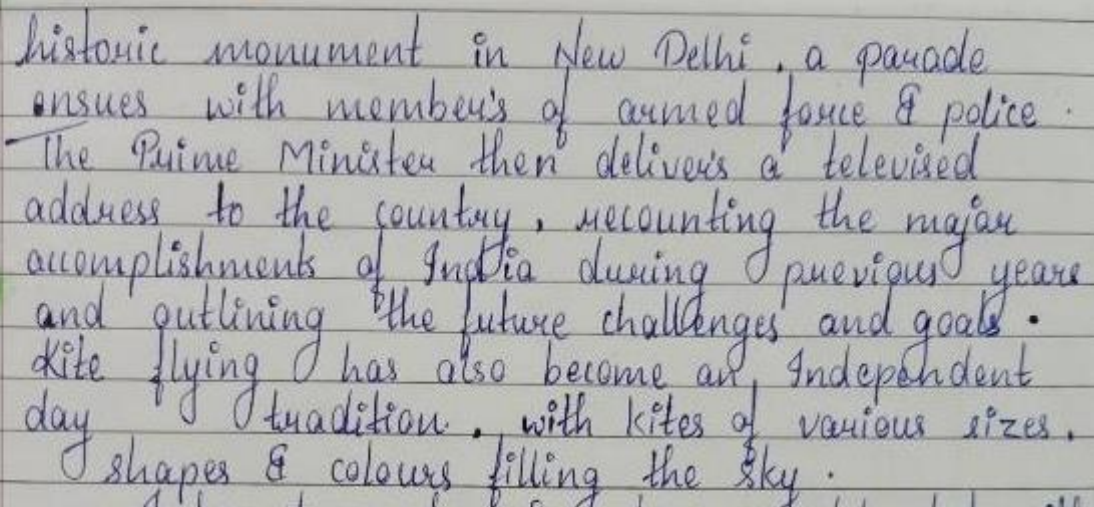 historic monument in New Delhi, a parade
ensues with members of armed force & police.
The Prime Minister then delivers a televised
address to the country, recounting the major
accomplishments of India during previous years
and outlining the future challenges and goals.
Kite flying has also become an Independent
day tradition, with kites of various sizes,
shapes & colours filling the sky.